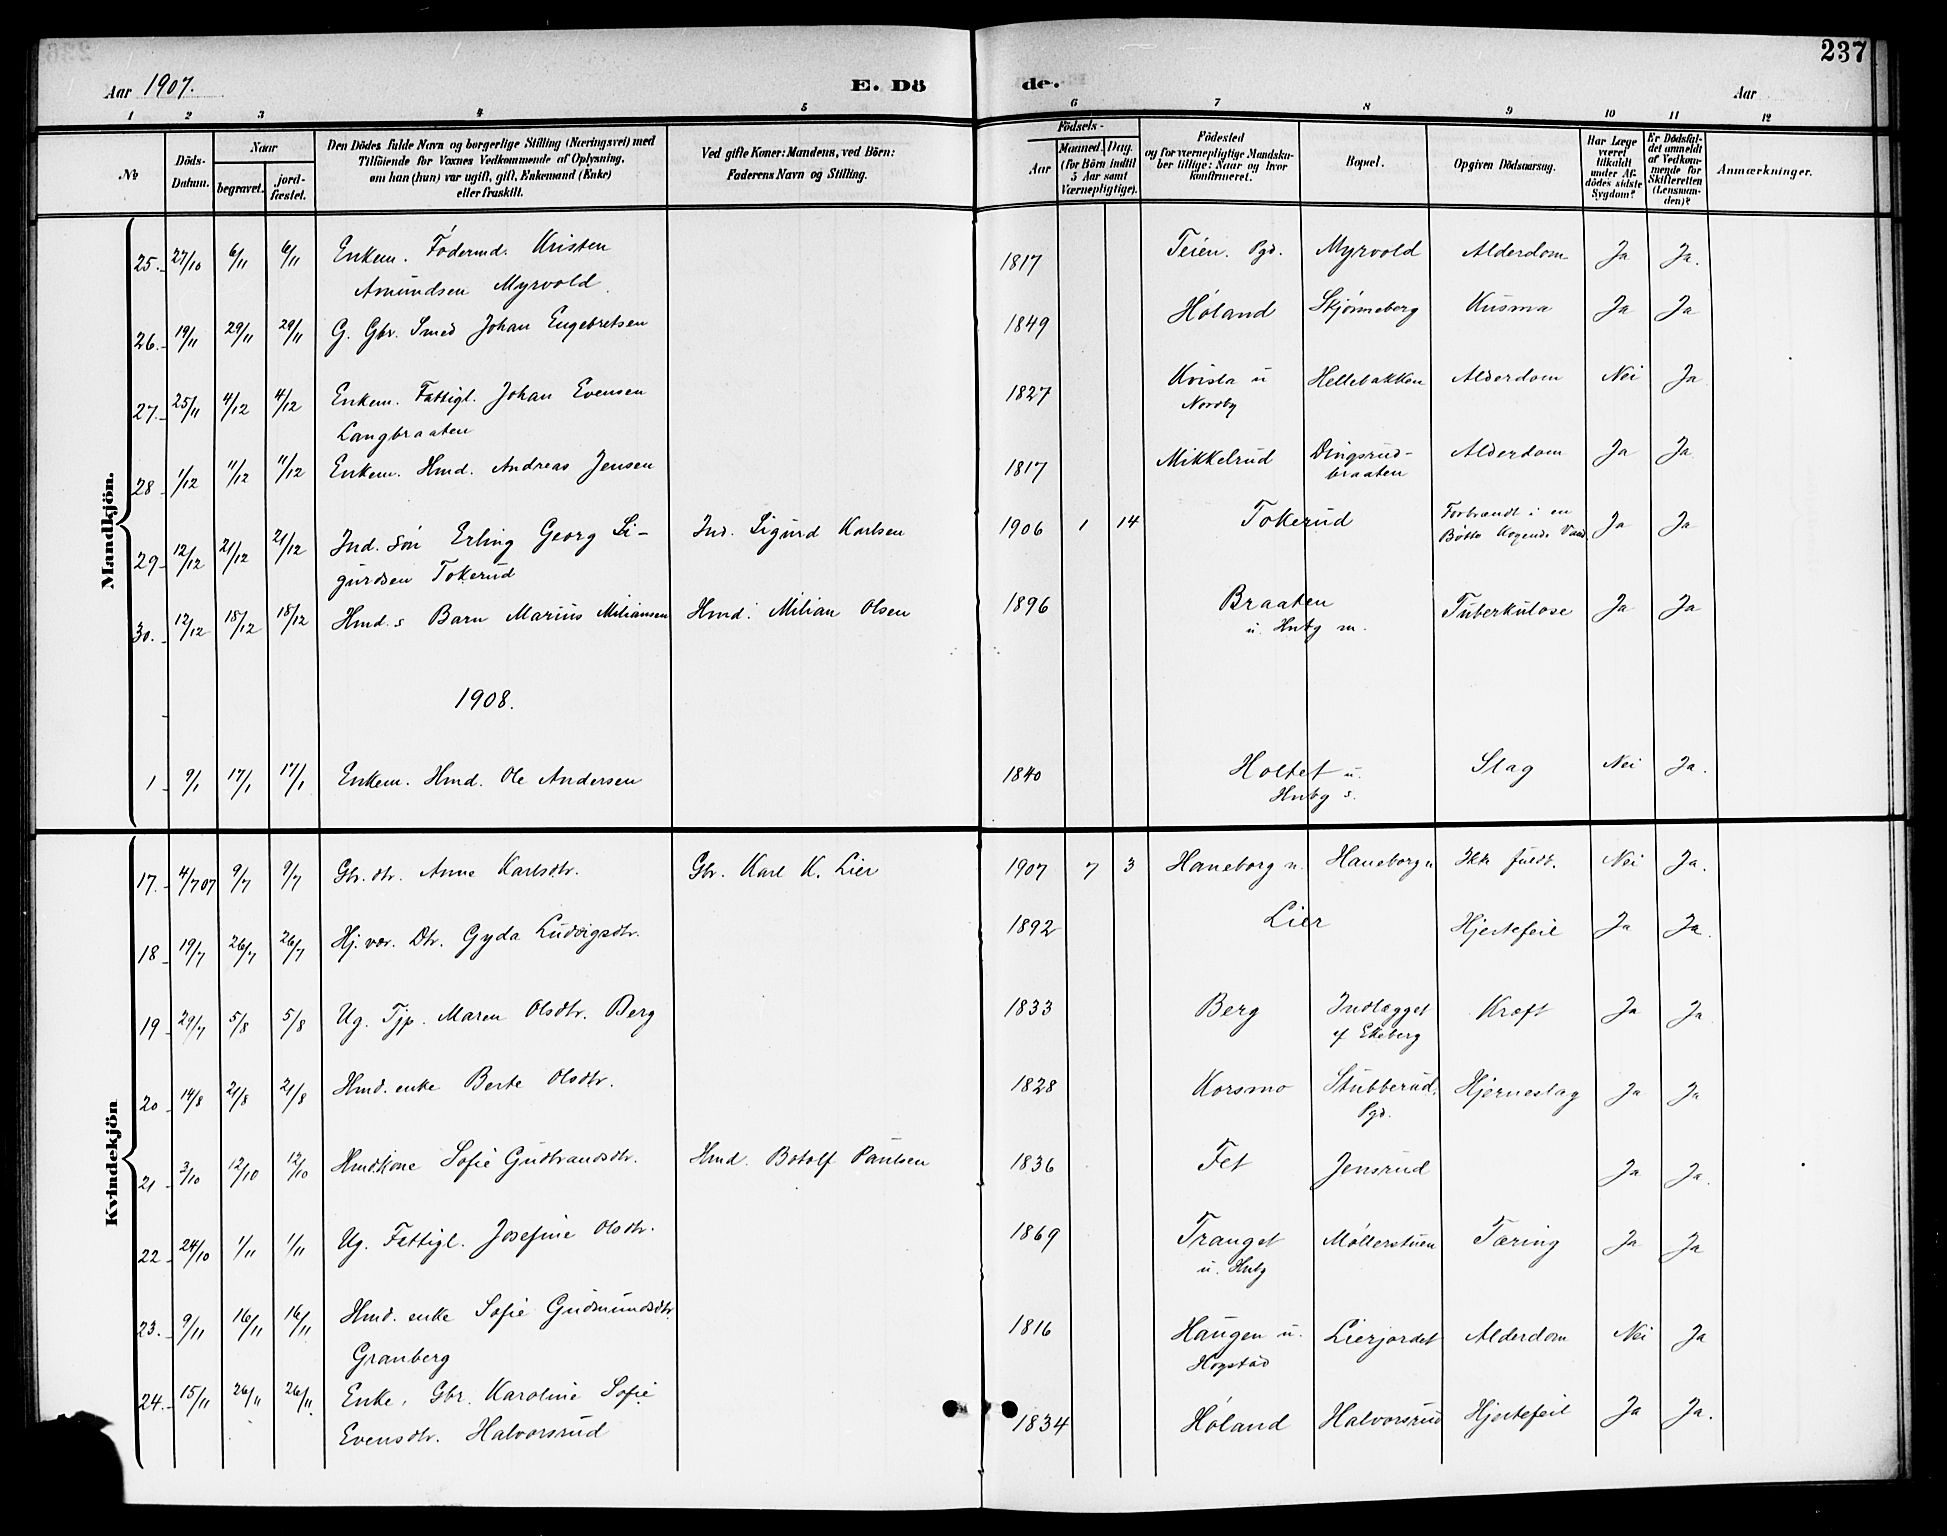 237
Aar 1907.
E. Dö
de.
Aar
1 2 3 4 5 6 7 8 9 10 11 12
No
Döds-Datum.
Naar
begravet.
jord-fæstet.
Den Dödes fulde Navn og borgerlige Stilling (Næringsvei) med
Tilföiende for Voxnes Vedkommende af Oplysning,
om han (hun) var ugift, gift, Enkemand (Enke)
eller fraskilt.
Ved gifte Koner: Mandens, ved Börn:
Faderens Navn og Stilling.
Födsels-
Aar
Maaned. Dag.
(for Börn indtil
5 Aar samt
Værnepligtige).
Födested
og for værnepligtige Mandska-
ber tillige: Naar og hvor
konfirmeret.
Bopæl.
Opgiven Dödsaarsag.
Har Læge
været
tilkaldt
under Af-
dödes sidste
Sygdom?
Er Dödsfal-
det anmeldt
af Vedkom-
mende for
Skifteretten
(Lensman-
den)?
Anmærkninger.
Mandkjön.
25. 27/10 6/11 6/11 Enkem. Födermd. Kristen 1817 Teien. Pgd. Myrvold Alderdom Ja Ja.
Amundsen Myrvold.
26. 19/11 29/11 29/11 G. Gbr. Smed Johan Engebretsen 1849 Höland Skjønneberg Kusma Ja Ja
27. 25/11 4/12 4/12 Enkem. Fattigl. Johan Evensen 1827 Kvisla u Hellebakken Alderdom Nei Ja
Langbraaten Nordby
28 1/12 11/12 11/12 Enkem. Hmd. Andreas Jensen 1817 Mikkelrud Dingsrud- Alderdom Ja Ja
braaten
29. 12/12 21/12 21/12 Ind. Sön Erling Georg Si- Ind. Sigurd Karlsen 1906 1 14 Tokerud Forbrændt i en Ja Ja
gurdsen Tokerud Bøtte Kogende Vand
30. 12/12 18/12 18/12 Hmd.s Barn Marius Miliansen Hmd. Milian Olsen 1896 Braaten Tuberkulose Ja Ja
u. Hnbg m.
1908.
1 9/1 17/1 17/1 Enkem. Hmd. Ole Andersen 1840 Holtet u. Slag Nei Ja.
Hnbg s.
Kvindekjön
17. 4/7 07 9/7 9/7 Gbr. dtr. Anne Karlsdtr. Gbr. Karl K. Lier 1907 7 3 Haneborg n. Haneborg n Ikke fuldb. Nei Ja.
18 19/7 26/7 26/7 Hj. vær. Dtr. Gyda Ludvigsdtr. 1892 Lier Hjertefeil Ja Ja.
19 29/7 5/8 5/8 Ug. Tjp. Maren Olsdtr. Berg 1833 Berg Indlægget Kræft Ja Ja
Ekeberg
20 14/8 21/8 21/8 Hmd. enke Berte Olsdtr. 1828 Korsmo Stubberud, Hjerneslag Ja Ja
Pgd.
21 3/10 12/10 12/10 Hmdskone Sofie Gudbrandsdtr. Hmd. Botolf Paulsen 1836 Fet Jensrud Ja Ja.
22 24/10 1/11 1/11 Ug. Fattigl. Josefine Olsdtr. 1869 Tranget Møllerstuen Tæring Ja Ja
u. Hnbg
23. 9/11 16/11 16/11 Hmd. enke Sofie Gudmundsdtr 1816 Haugen u. Lierjordet Alderdom Nei Ja
Granberg Hogstad
24. 15/11 26/11 26/11 Enke, Gbr. Karoline Sofie 1834 Høland Halvorsrud Hjertefeil Ja Ja.
Evensdtr. Halvorsrud